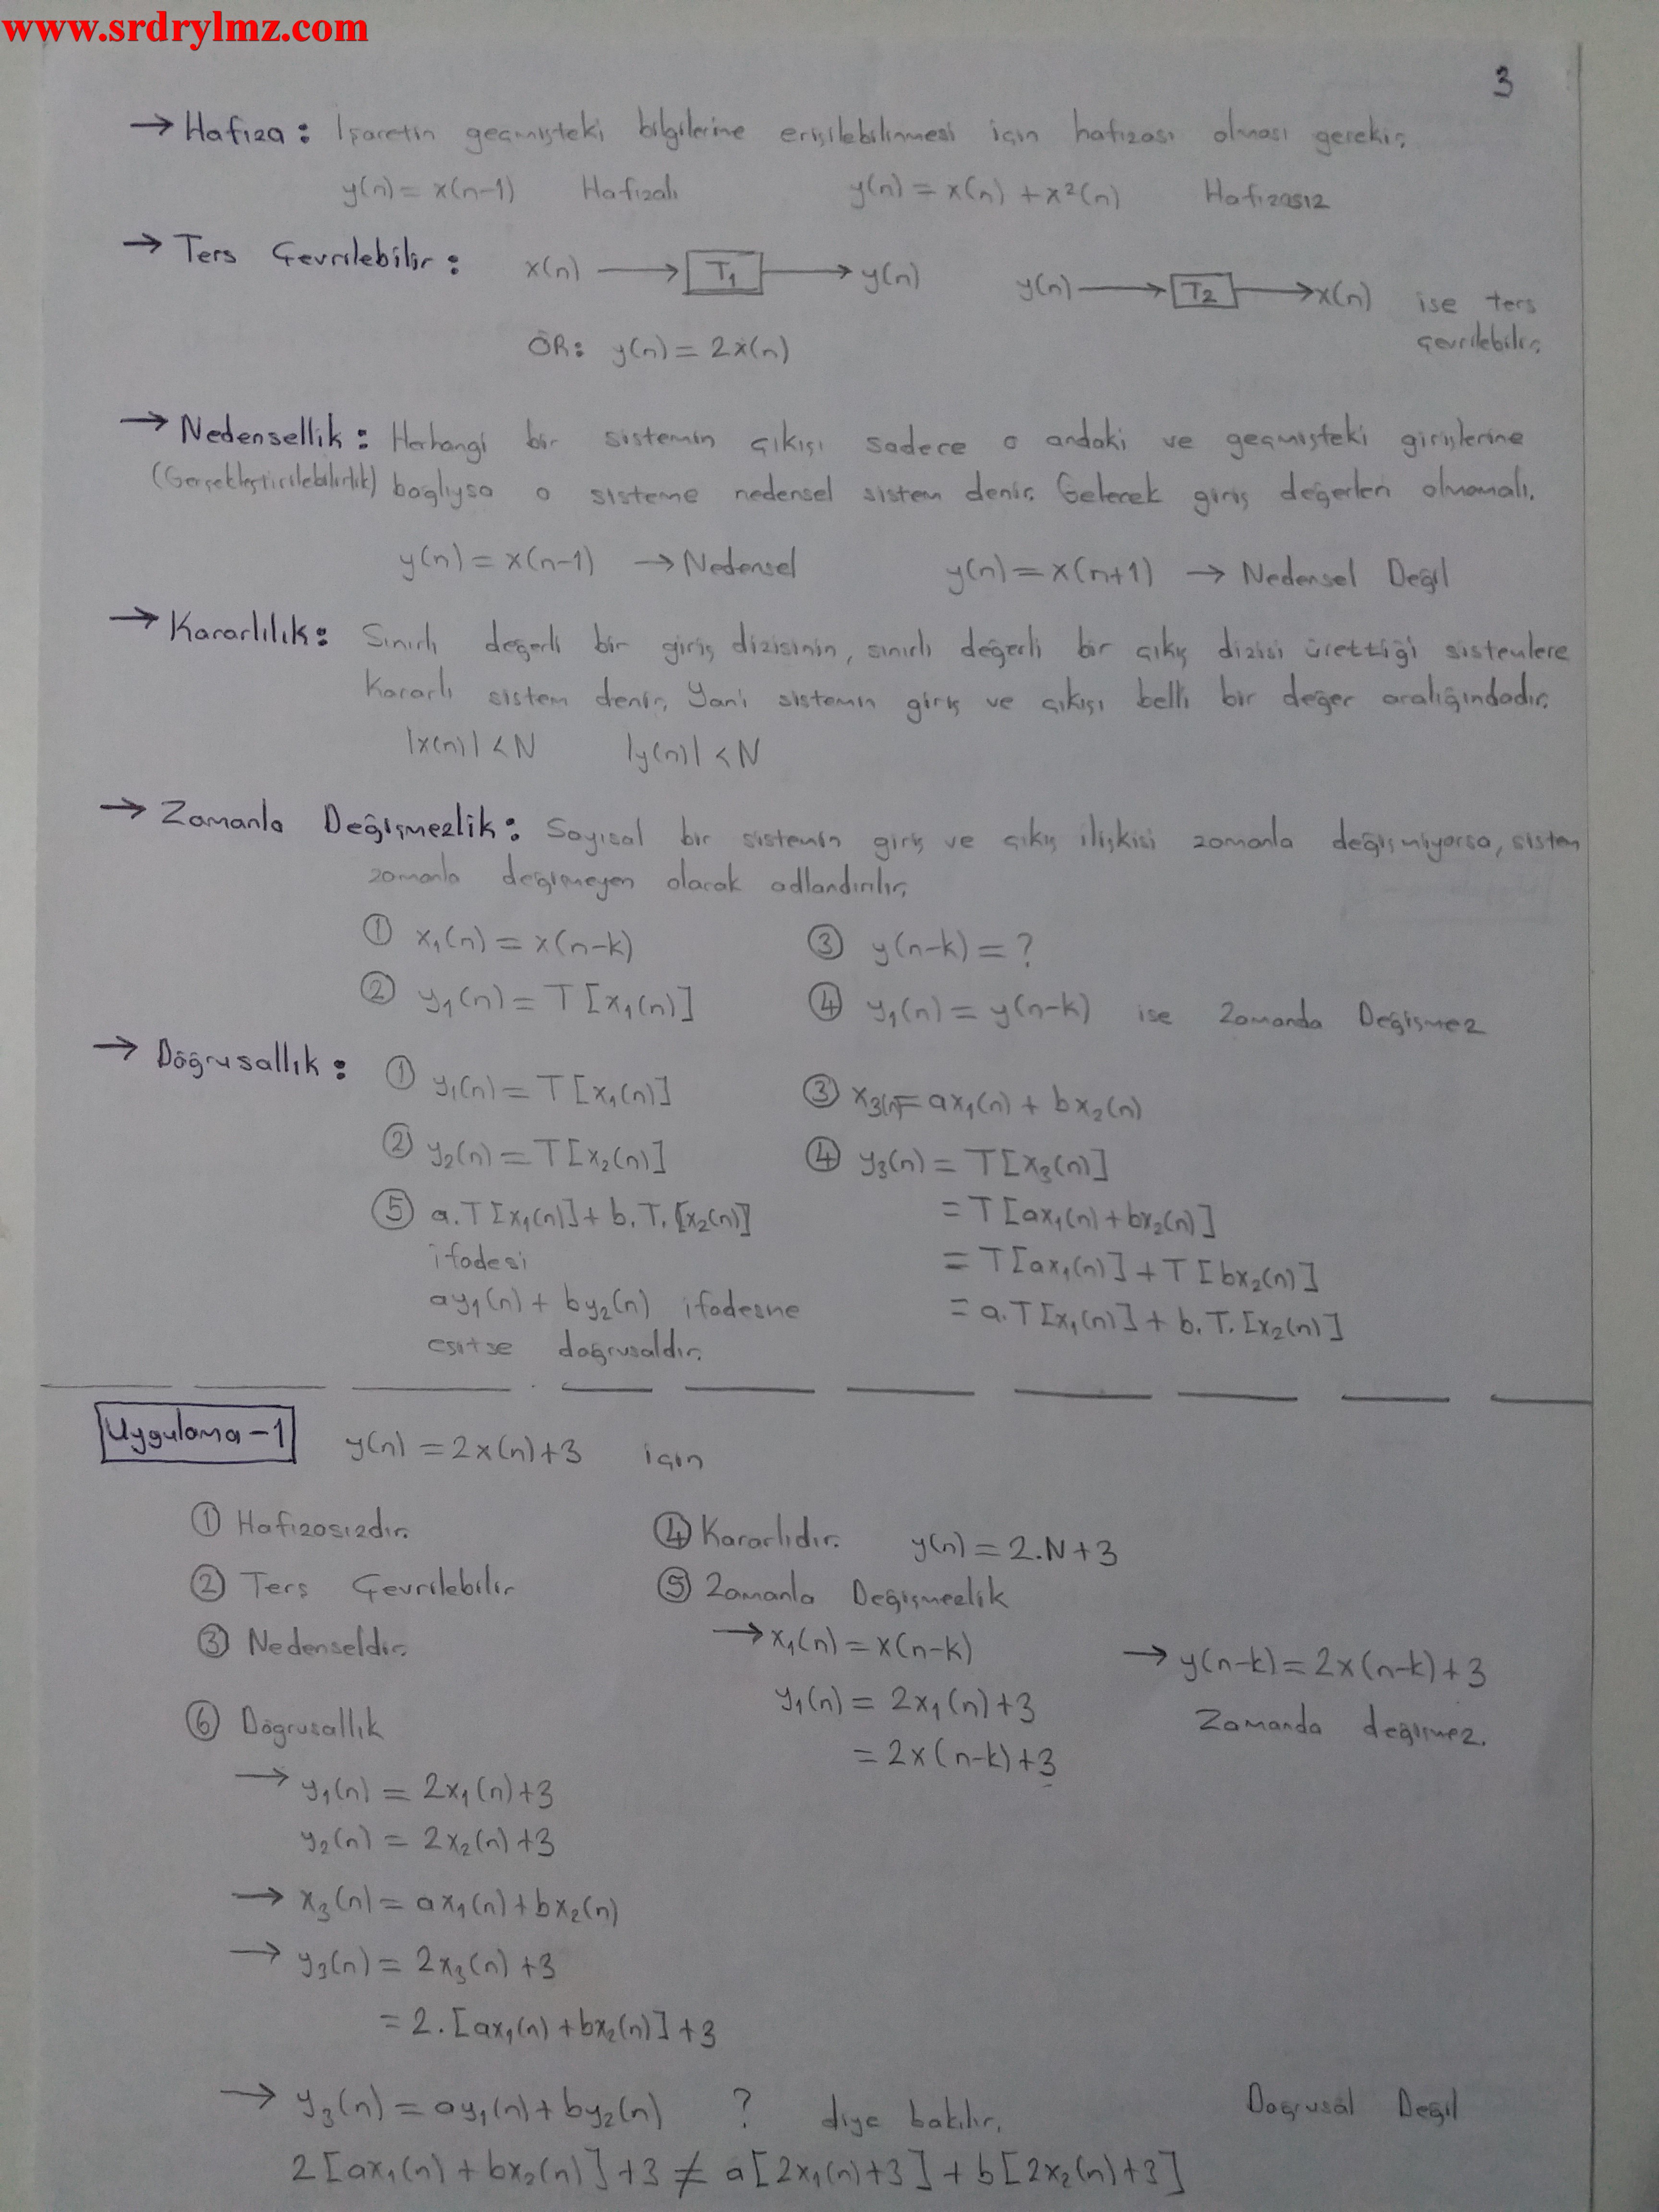 www.srdrylmz.com
3
→ Hafıza: İşaretin geçmişteki bilgilerine erişilebilinmesi için hafızası olması gerekir.
y(n) = x(n-1) Hafızalı y(n) = x(n) + x²(n) Hafızasız
→ Ters Çevrilebilir: x(n) → T₁ → y(n) y(n) → T₂ → x(n) ise ters
çevrilebilir.
ÖR: y(n) = 2x(n)
→ Nedensellik: Herhangi bir sistemin çıkışı sadece o andaki ve geçmişteki girişlerine
(Gerçekleştirilebilirlik) bağlıysa o sisteme nedensel sistem denir. Gelecek giriş değerleri olmamalı.
y(n) = x(n-1) → Nedensel y(n) = x(n+1) → Nedensel Değil
→ Kararlılık: Sınırlı değerli bir giriş dizisinin, sınırlı değerli bir çıkış dizisi ürettiği sistemlere
kararlı sistem denir. Yani sistemin giriş ve çıkışı belli bir değer aralığındadır.
|x(n)| < N |y(n)| < N
→ Zamanla Değişmezlik: Sayısal bir sistemin giriş ve çıkış ilişkisi zamanla değişmiyorsa, sistem
zamanla değişmeyen olarak adlandırılır.
① x₁(n) = x(n-k) ③ y(n-k) = ?
② y₁(n) = T[x₁(n)] ④ y₁(n) = y(n-k) ise Zamanda Değişmez
→ Doğrusallık: ① y₁(n) = T[x₁(n)] ③ x₃(n) = ax₁(n) + bx₂(n)
② y₂(n) = T[x₂(n)] ④ y₃(n) = T[x₃(n)]
⑤ a.T[x₁(n)] + b.T.[x₂(n)] = T[ax₁(n) + bx₂(n)]
ifadesi = T[ax₁(n)] + T[bx₂(n)]
ay₁(n) + by₂(n) ifadesine = a.T[x₁(n)] + b.T.[x₂(n)]
eşitse doğrusaldır.
Uygulama-1 y(n) = 2x(n)+3 için
① Hafızasızdır. ④ Kararlıdır. y(n) = 2.N+3
② Ters Çevrilebilir ⑤ Zamanla Değişmezlik
③ Nedenseldir. → x₁(n) = x(n-k) → y(n-k) = 2x(n-k)+3
y₁(n) = 2x₁(n)+3 Zamanda değişmez.
⑥ Doğrusallık = 2x(n-k)+3
→ y₁(n) = 2x₁(n)+3
y₂(n) = 2x₂(n)+3
→ x₃(n) = ax₁(n)+bx₂(n)
→ y₃(n) = 2x₃(n)+3
= 2.[ax₁(n)+bx₂(n)]+3
→ y₃(n) = ay₁(n)+by₂(n) ? diye bakılır. Doğrusal Değil
2[ax₁(n)+bx₂(n)]+3 ≠ a[2x₁(n)+3]+b[2x₂(n)+3]